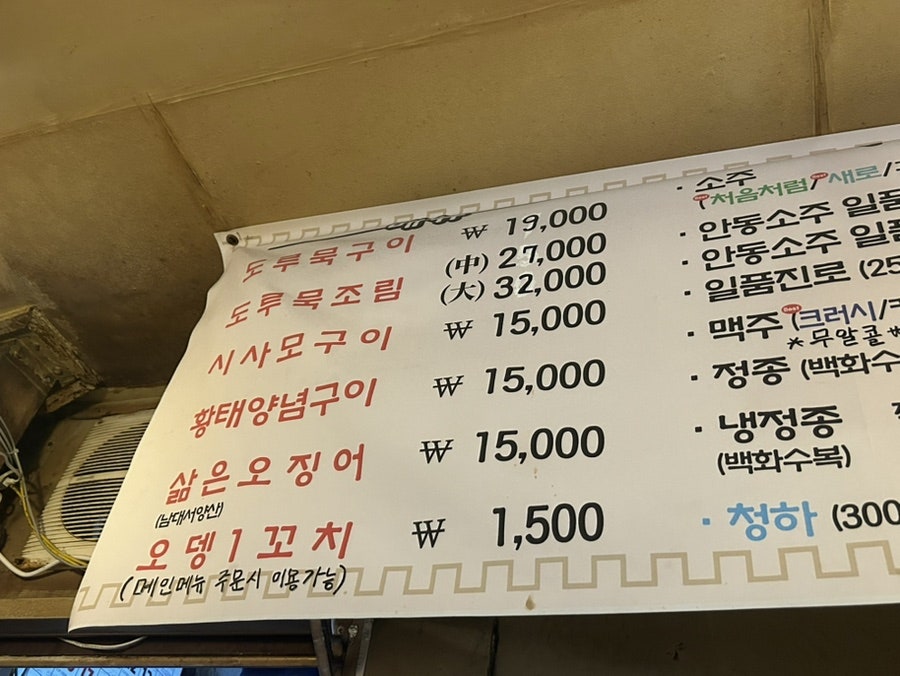 도루묵구이 ₩ 19,000
도루묵조림 (中) 27,000
(大) 32,000
시사모구이 ₩ 15,000
황태양념구이 ₩ 15,000
삶은오징어 ₩ 15,000
(남대서양산)
오뎅1꼬치 ₩ 1,500
(메인메뉴 주문시 이용가능)
· 소주
처음처럼/새로/
· 안동소주 일품
· 안동소주 일품
· 일품진로 (25
· 맥주 (크러시/
*무알콜*
· 정종 (백화수
· 냉정종
(백화수복)
· 청하 (300